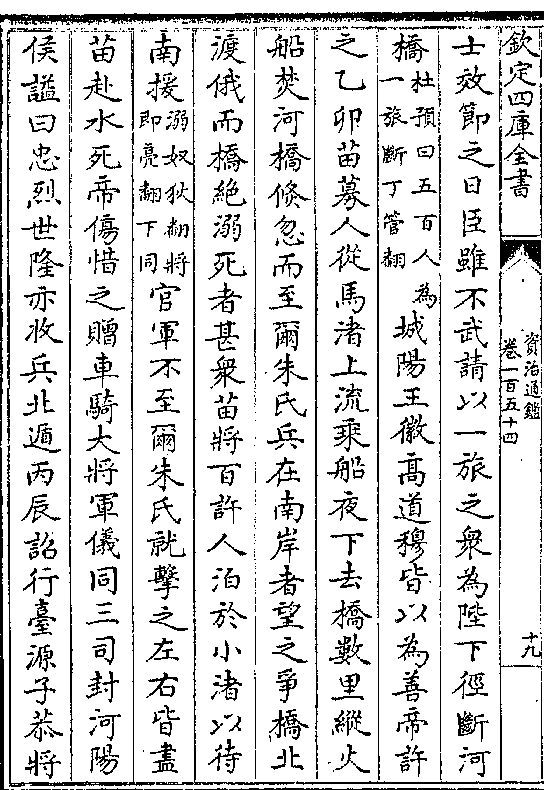 欽定四庫全書
資治通鑑
卷一百五十四
十九
士效節之日臣雖不武請以一旅之衆為陛下徑斷河
橋杜預曰五百人為一旅斷丁管翻城陽王徽高道穆皆以為善帝許
之乙卯苗募人從馬渚上流乘船夜下去橋數里縱火
船焚河橋倐忽而至爾朱氏兵在南岸者望之爭橋北
渡俄而橋絶溺死者甚衆苗將百許人泊於小渚以待
南援溺奴狄翻將即亮翻下同官軍不至爾朱氏就擊之左右皆盡
苗赴水死帝傷惜之贈車騎大將軍儀同三司封河陽
侯諡曰忠烈世隆亦收兵北遁丙辰詔行臺源子恭將